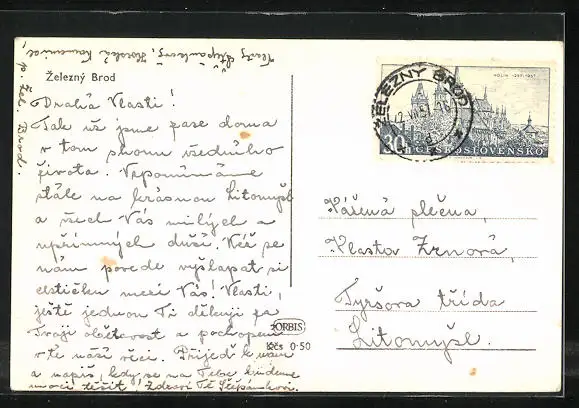 Vlasty Štěpánkovi, Horská Kamenice,
p. Žel. Brod.
Železný Brod
Drahá Vlasti!
Tak už jsme zase doma
v tom shonu všedního
života. Vzpomínáme
stále na krásnou Litomyšl
a všech Vás milých a
upřímných duší. Kéž se
nám povede vyšlapat si
cestičku mezi Vás! Vlasti,
ještě jednou Ti děkuji za
Tvoji obětavost a pochopení
v té naší věci. Přijeď k nám
a napiš, kdy se na Tebe budeme
moci těšit. Zdraví Tě Štěpánkovi.
ORBIS
Kčs 0·50
KOLÍN 1257-1957
ŽELEZNÝ BROD
30 h ČESKOSLOVENSKO
Vážená slečna,
Vlasta Zrnová,
Tyršova třída
Litomyšl.